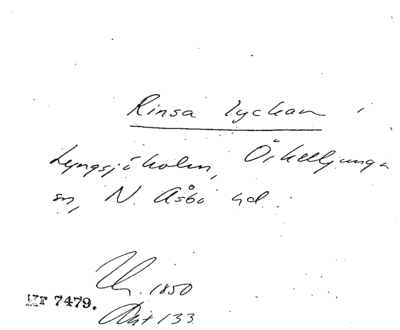 Rinsa lyckan i
Lyngsjöholm, Örkelljunga
sn, N. Åsbo hd.
1850
Akt 133
MF 7479.